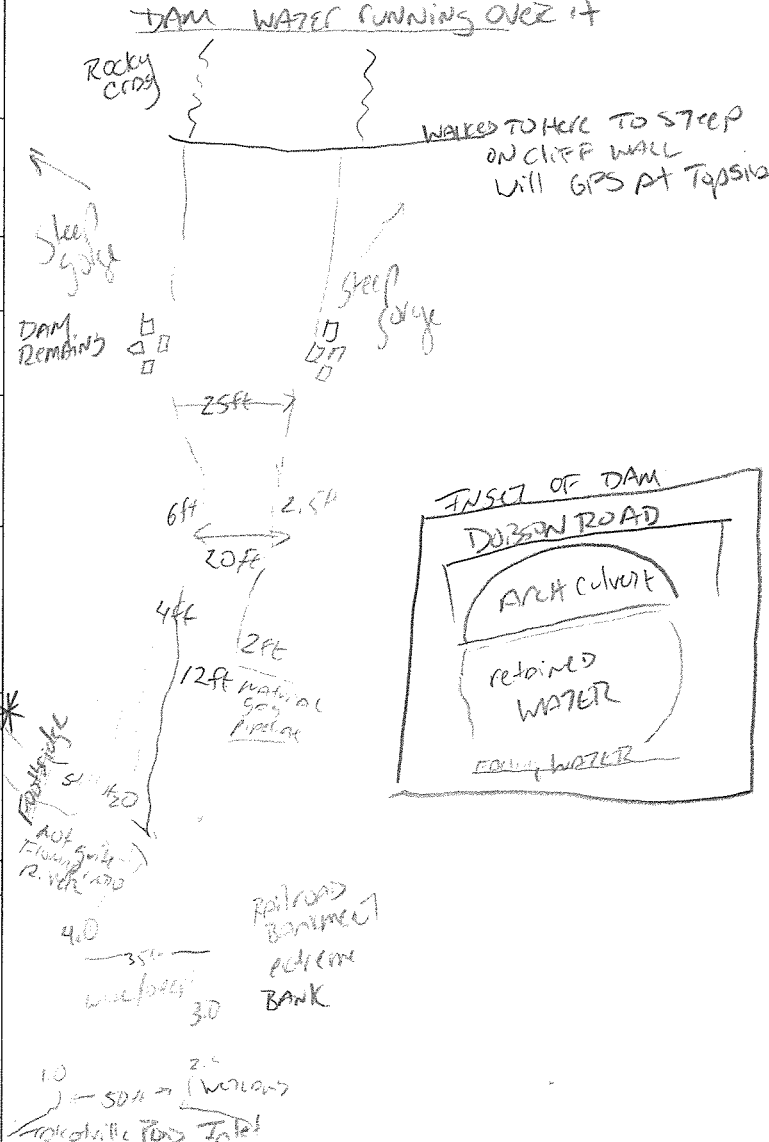 DAM WATER RUNNING OVER IT
Rocky
WALKED TO HERE TO STEEP
ON CLIFF WALL
Will GPS At TOPSIDE
Steep
gorge
Steep
gorge
DAM
REMAINS
25ft
6ft
2.5ft
20ft
4ft
2ft
12ft NATURAL
gas
pipeline
INSET OF DAM
DOBSON ROAD
ARCH culvert
retained
WATER
WATER
Footbridge
H20
Not quite
River
Railroad
BANKMENT
extreme
BANK
4.0
35ft
3.0
1.0
50ft
Wetlands
Pond Inlet